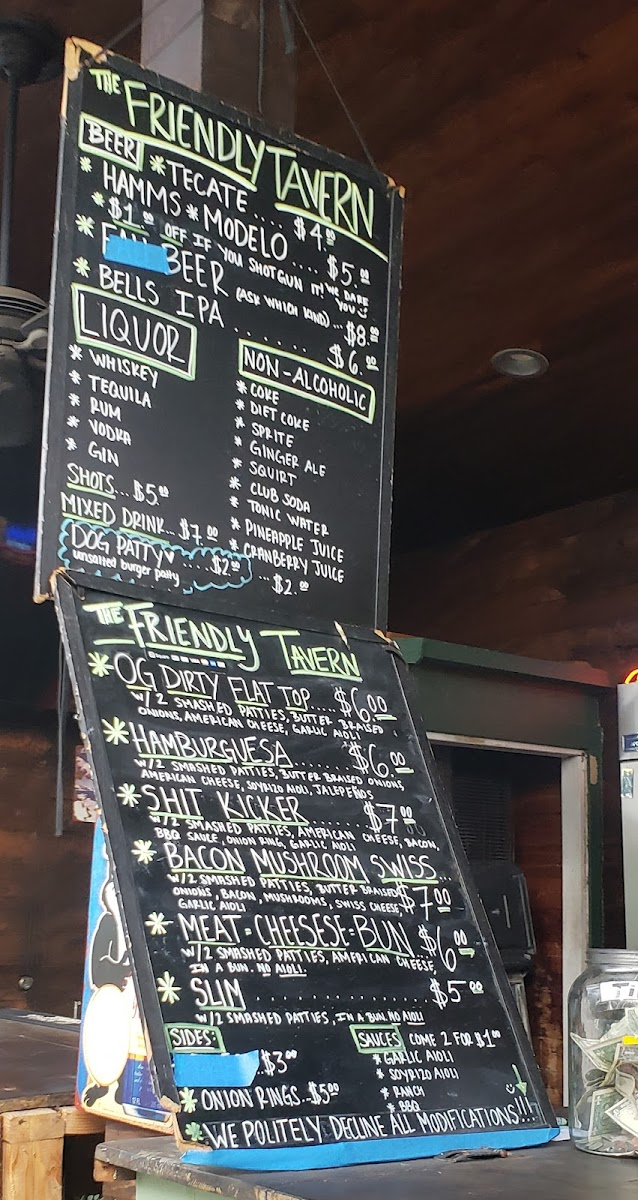 THE FRIENDLY TAVERN
BEER
* TECATE ... $4.00
* HAMMS * MODELO .... $5.00
* $1.00 OFF IF YOU SHOTGUN IT! WE DARE YOU
* BEER (ASK WHICH KIND) ... $8.00
* BELLS IPA ....... $6.00
LIQUOR
* WHISKEY
* TEQUILA
* RUM
* VODKA
* GIN
SHOTS...$5.00
MIXED DRINK...$7.00
DOG PATTY ♥ ....$2.00
unsalted burger patty
NON-ALCOHOLIC
* COKE
* DIET COKE
* SPRITE
* GINGER ALE
* SQUIRT
* CLUB SODA
* TONIC WATER
* PINEAPPLE JUICE
* CRANBERRY JUICE
... $2.00
THE FRIENDLY TAVERN
* OG DIRTY FLAT TOP.....$6.00
W/ 2 SMASHED PATTIES, BUTTER BRAISED
ONIONS, AMERICAN CHEESE, GARLIC AIOLI
* HAMBURGUESA........$6.00
W/2 SMASHED PATTIES, BUTTER BRAISED ONIONS,
AMERICAN CHEESE, SOYRIZO AIOLI, JALEPEÑOS
* SHIT KICKER ........ $7.00
W/2 SMASHED PATTIES, AMERICAN CHEESE, BACON,
BBQ SAUCE, ONION RING, GARLIC AIOLI
* BACON MUSHROOM SWISS...
W/2 SMASHED PATTIES, BUTTER BRAISED $7.00
ONIONS, BACON, MUSHROOMS, SWISS CHEESE,
GARLIC AIOLI
* MEAT=CHEESESE=BUN..$6.00
W/2 SMASHED PATTIES, AMERICAN CHEESE,
IN A BUN. NO AIOLI.
* SLIM ............... $5.00
W/2 SMASHED PATTIES, IN A BUN. NO AIOLI
SIDES:
$3.00
* ONION RINGS..$5.00
SAUCES COME 2 FOR $1.00
* GARLIC AIOLI
* SOYRIZO AIOLI
* RANCH
* BBQ
* WE POLITELY DECLINE ALL MODIFICATIONS!!!